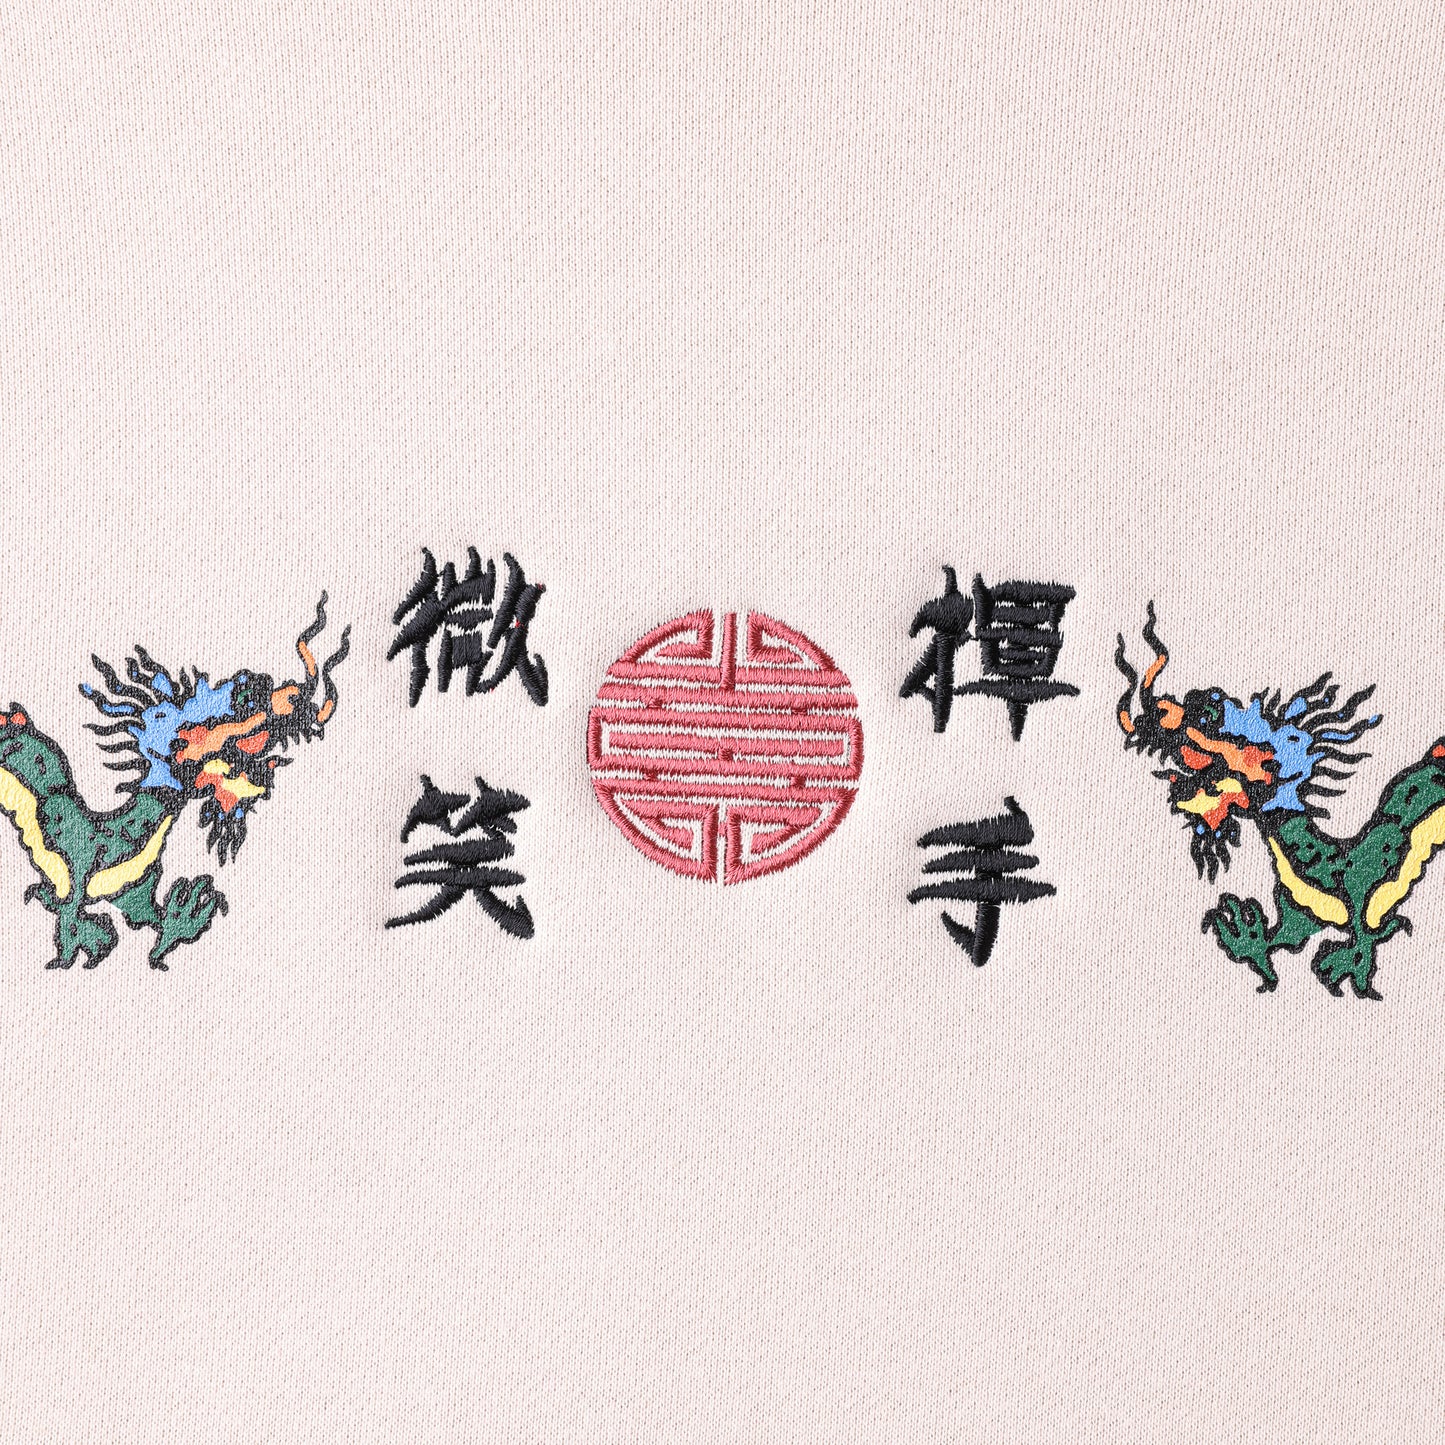 微笑
揮手